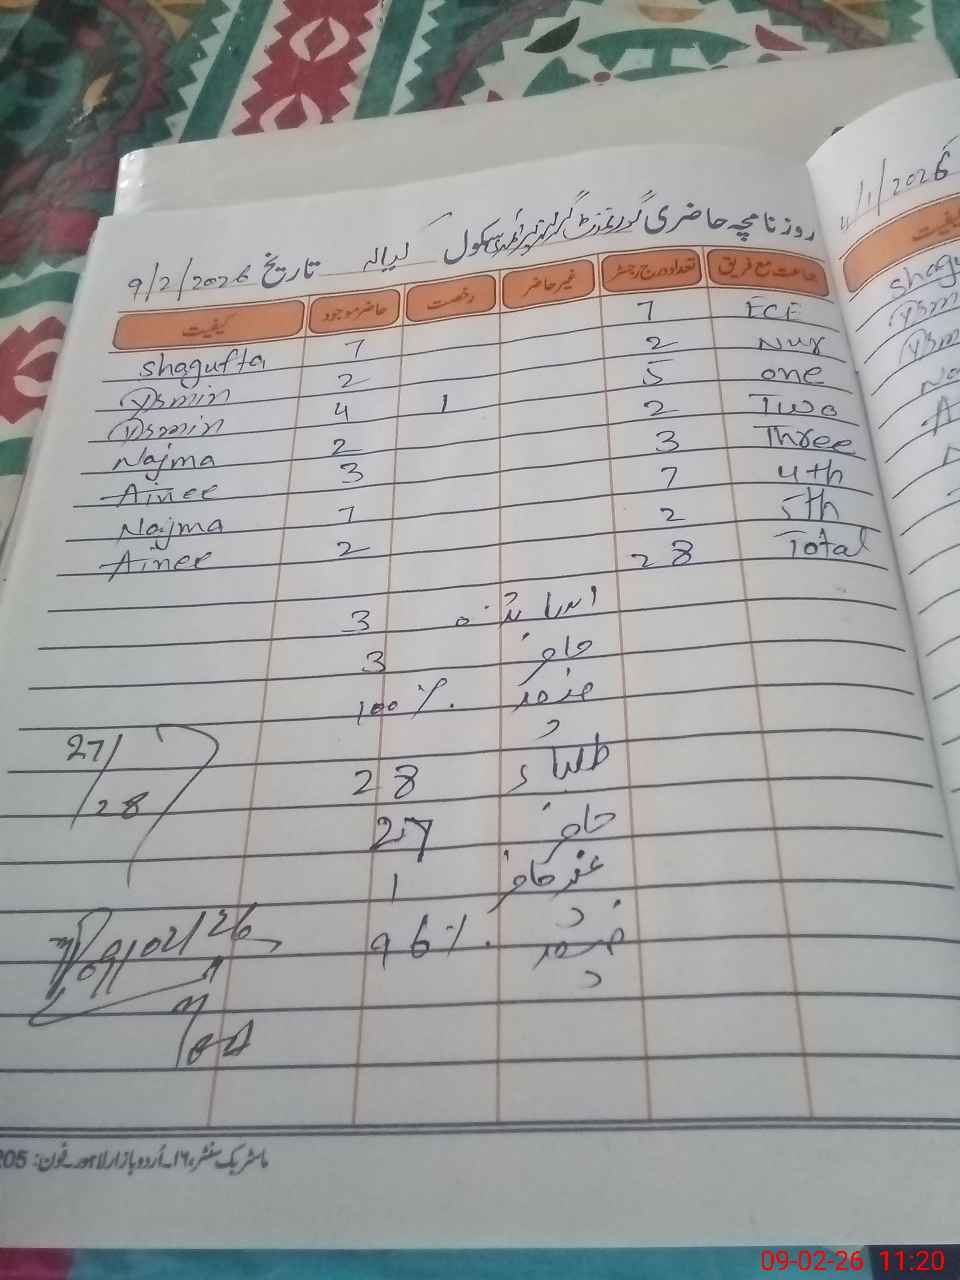 روزنامچہ حاضری گورنمنٹ گرلز پرائمری سکول کدیالہ تاریخ 9/2/2026
جماعت مع فریق تعداد درج رجسٹر غیر حاضر رخصت حاضر موجود کیفیت
ECE 7 7 Shagufta
Nur 2 2 Ysmin
one 5 1 4 Ysmin
Two 2 2 Najma
Three 3 3 Ainee
4th 7 7 Najma
5th 2 2 Ainee
Total 28
اساتذہ 3
حاضر 3
فیصد 100%
طلباء 28
27/28
حاضر 27
غیر حاضر 1
فیصد 96%
09/02/26
ماسٹر بک سنٹر، ۱۶۔اُردو بازار لاہور۔فون: 205
4/1/2026
کیفیت
Shagu
Ysm
Ysm
Na
A
N
09-02-26 11:20